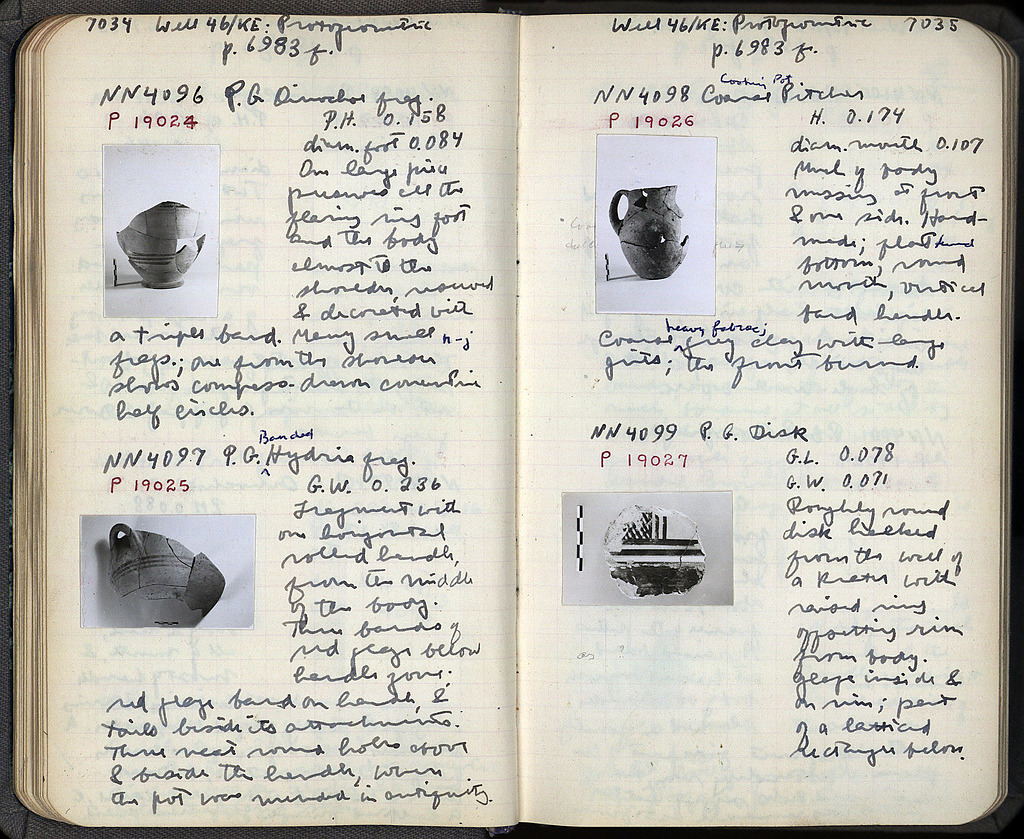 7034 Well 46/KE: Protogeometric
p. 6983 f.
NN4096 P.G. Oinochoe frag.
P 19024
P.H. 0.158
diam. foot 0.084
One large piece
preserves all the
flaring ring foot
and the body
almost to the
shoulder, reserved
& decorated with
a triple band. Many small n-j
frags.; one from the shoulder
shows compass-drawn concentric
half circles.
Banded
NN4097 P.G. ^ Hydria frag.
P 19025
G.W. 0.236
Fragment with
one horizontal
rolled handle,
from the middle
of the body.
Three bands of
red glaze below
handle zone;
red glaze band on handle, &
tails beside its attachments.
Three neat round holes above
& beside the handle, where
the pot was mended in antiquity.
Well 46/KE: Protogeometric 7035
p. 6983 f.
Cooking Pot
NN4098 Coarse Pitcher
P 19026
H. 0.174
diam. mouth 0.107
Much of body
missing at front
& one side. Hand-
made; flat
bottom, round
mouth, vertical
band handle.
heavy fabric;
Coarse ^ grey clay with large
grits; the front burned.
NN4099 P.G. Disk
P 19027
G.L. 0.078
G.W. 0.071
Roughly round
disk hacked
from the wall of
a krater with
raised ring
offsetting rim
from body.
Glaze inside &
on rim; part
of a latticed
rectangle below.